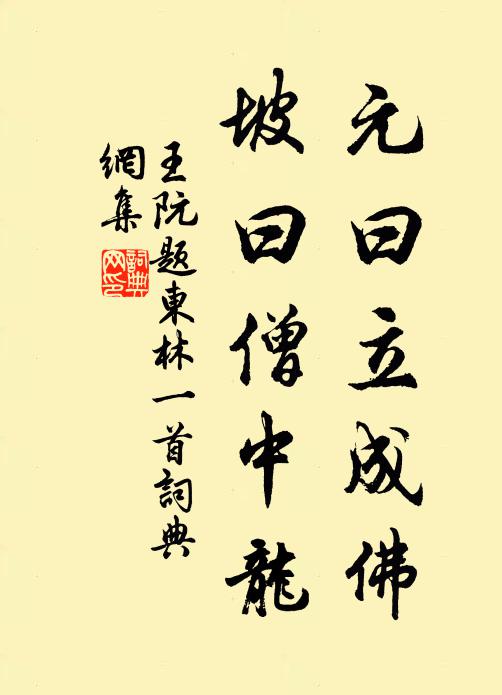 元曰立成佛
坡曰僧中龍
王阮題東林一首詞典
網集
詞典網印